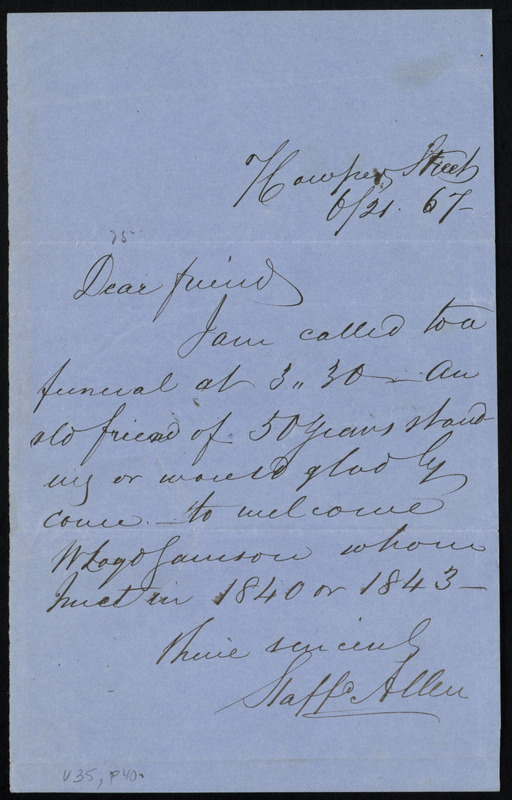 Street
6/21. 67-
75
Dear friend
I am called to a
funeral at 3,, 30 - An
old friend of 50 years stand
ing or would gladly
come - to welcome
W Loyd Garrison whom
I met in 1840 or 1843 -
thine sincerely
Staffd Allen
V35, P40.